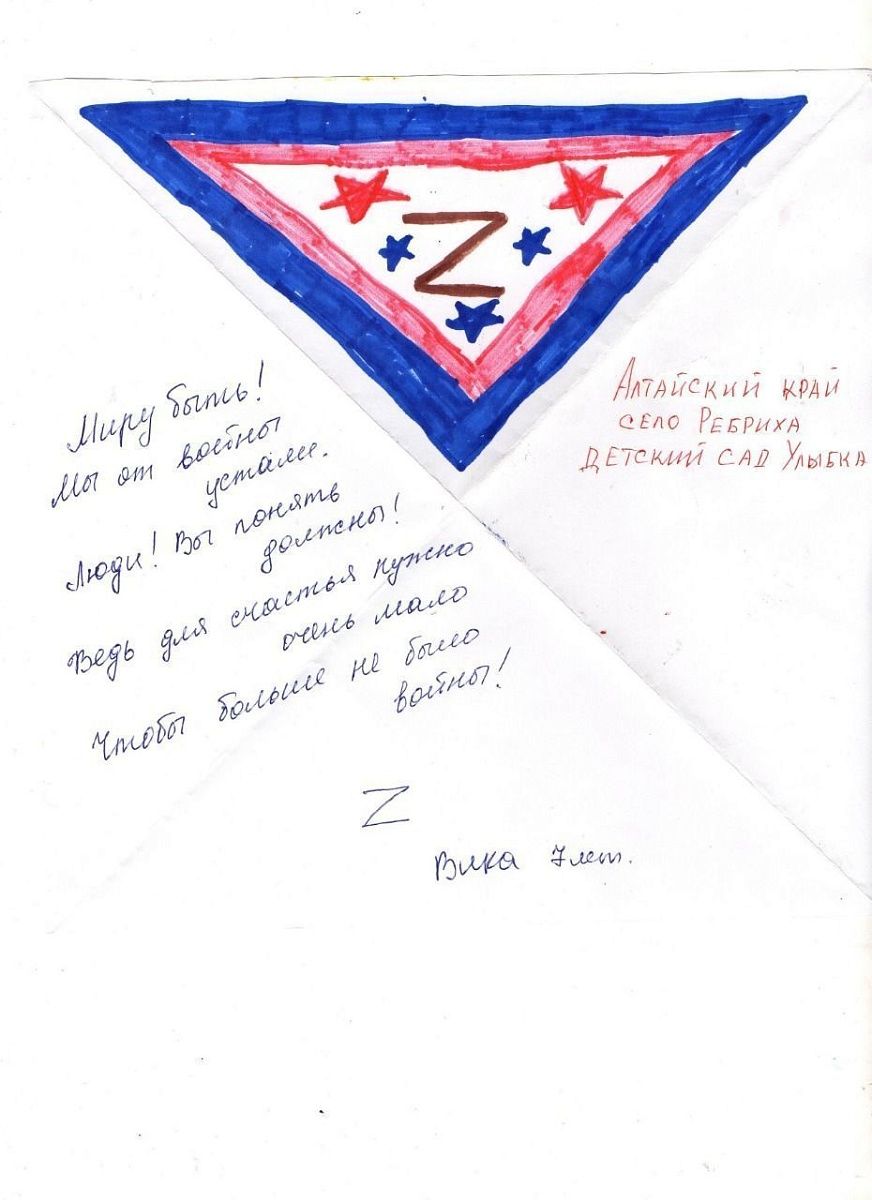 Z
Алтайский край
село Ребриха
детский сад Улыбка
Миру быть!
Мы от войны
устали.
Люди! Вы понять
должны!
Ведь для счастья нужно
очень мало
Чтобы больше не было
войны!
Z
Вика 7 лет.